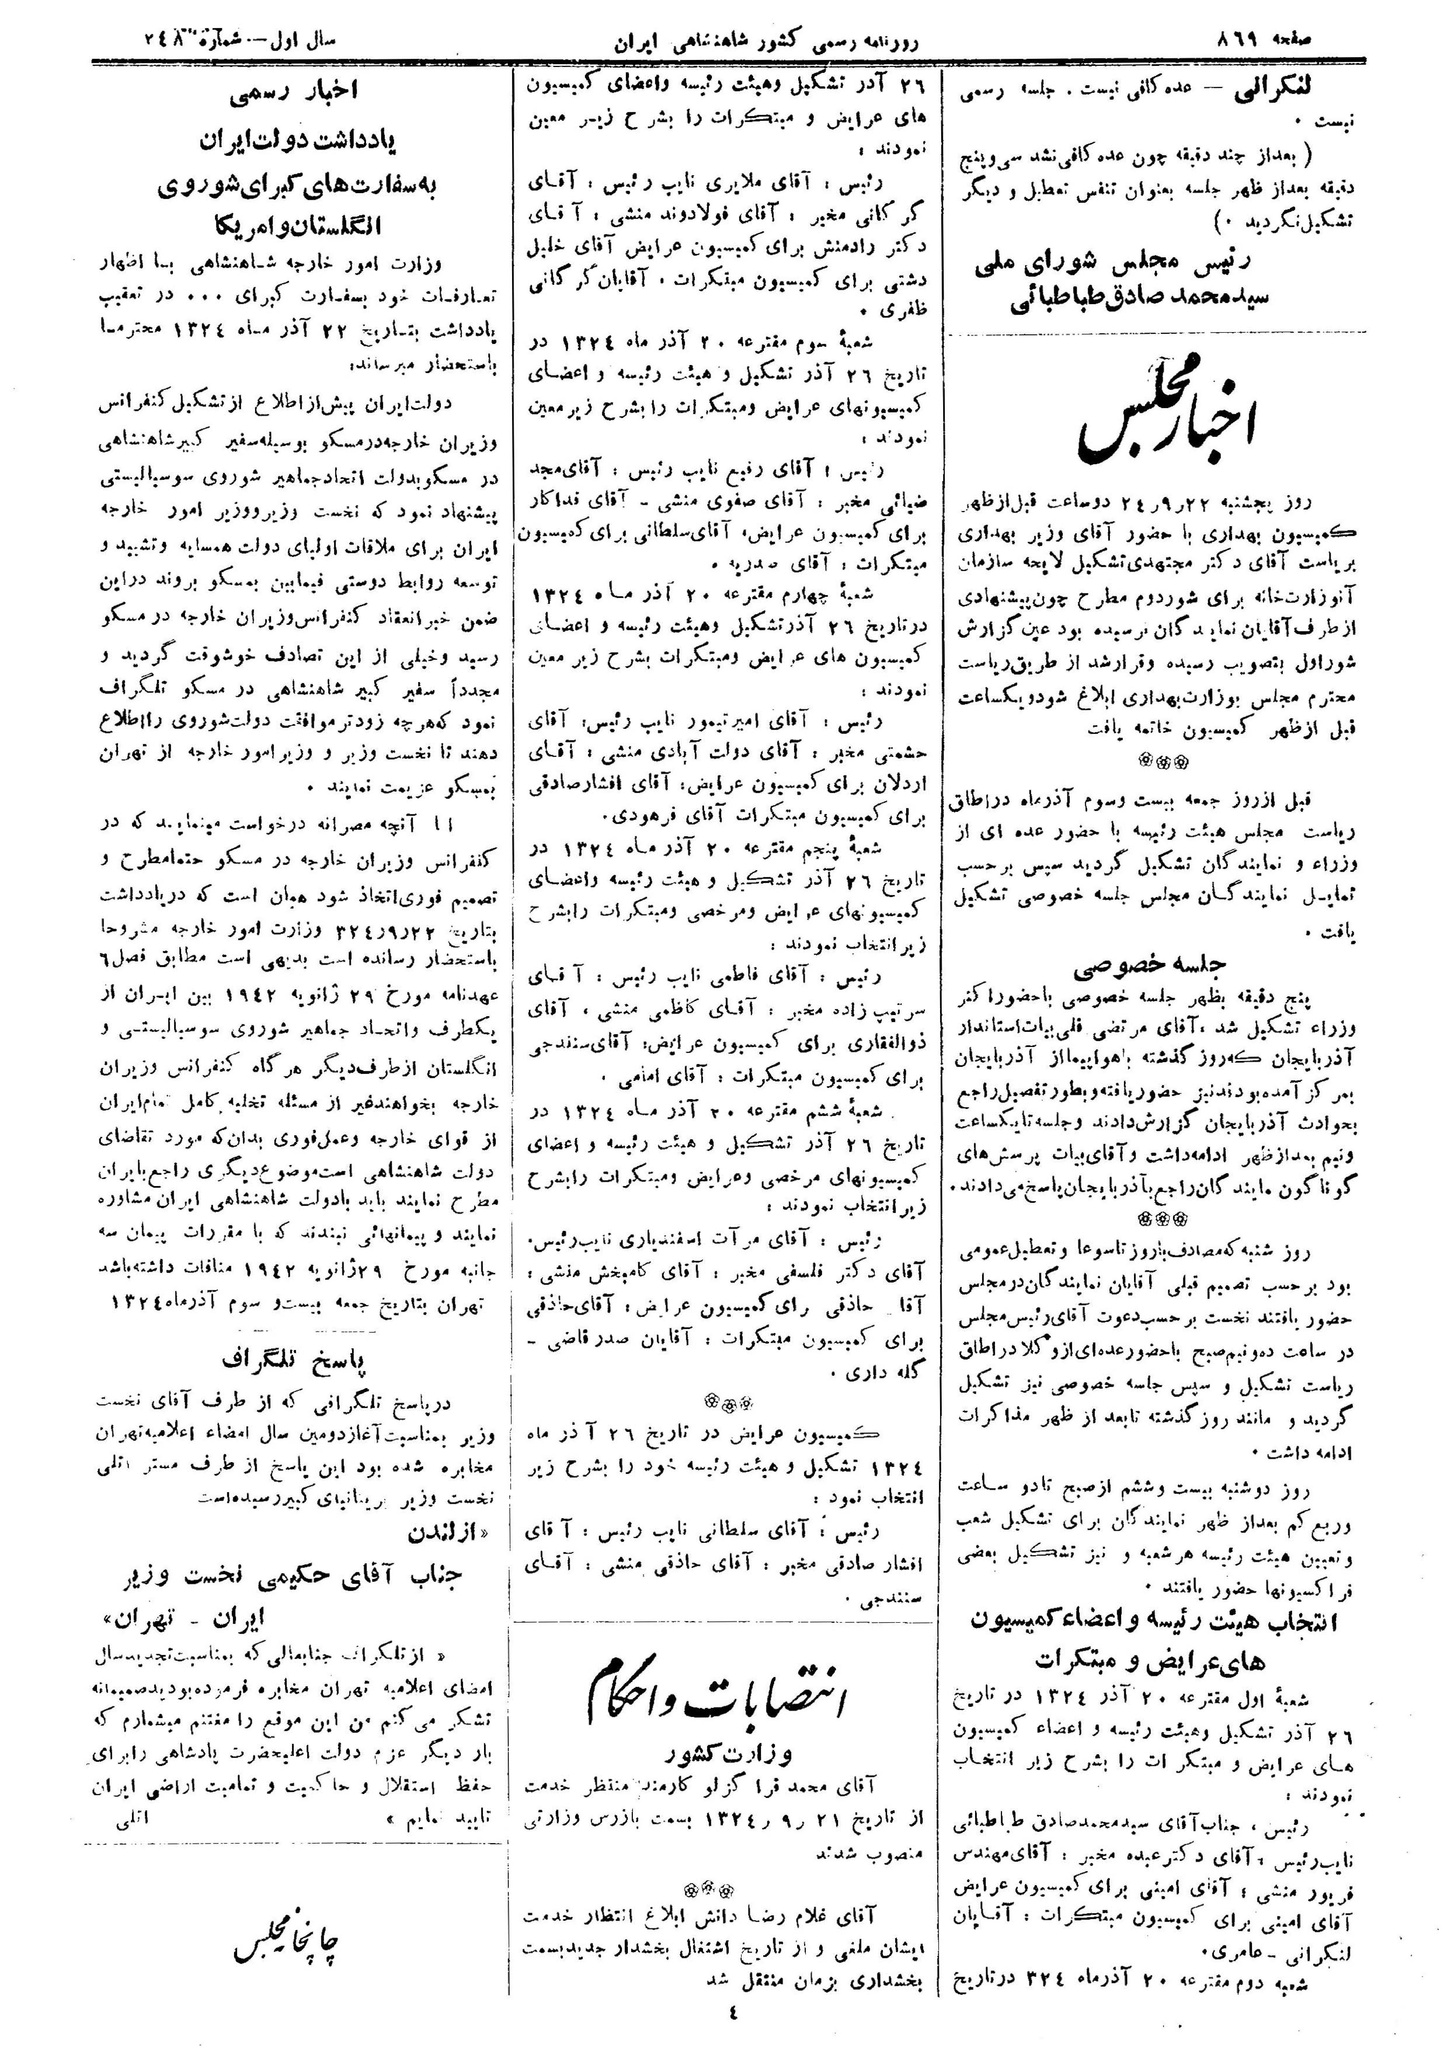 صفحه ۸۶۹
روزنامه رسمی کشور شاهنشاهی ایران
سال اول – شماره ۲۴۸
لنکرانی – عده کافی نیست . جلسه رسمی
نیست .
( بعداز چند دقیقه چون عده کافی نشد سی وپنج
دقیقه بعداز ظهر جلسه بعنوان تنفس تعطیل و دیگر
تشکیل نگردید . )
رئیس مجلس شورای ملی
سیدمحمد صادق طباطبائی
اخبار مجلس
روز پنجشنبه ۲۲ر۹ر۲۴ دوساعت قبل ازظهر
کمیسیون بهداری با حضور آقای وزیر بهداری
بریاست آقای دکتر مجتهدی تشکیل لایحه سازمان
آنوزارت خانه برای شوردوم مطرح چون پیشنهادی
ازطرف آقایان نمایندگان نرسیده بود عین گزارش
شوراول بتصویب رسیده وقرارشد از طریق ریاست
محترم مجلس بوزارت بهداری ابلاغ شودویکساعت
قبل ازظهر کمیسیون خاتمه یافت
قبل ازروز جمعه بیست وسوم آذرماه دراطاق
ریاست مجلس هیئت رئیسه با حضور عده ای از
وزراء و نمایندگان تشکیل گردید سپس برحسب
تمایل نمایندگان مجلس جلسه خصوصی تشکیل
یافت .
جلسه خصوصی
پنج دقیقه بظهر جلسه خصوصی باحضور اکثر
وزراء تشکیل شد ، آقای مرتضی قلی بیات استاندار
آذربایجان که روز گذشته باهواپیما از آذربایجان
بمرکز آمده بودند نیز حضور یافته و بطور تفصیل راجع
بحوادث آذربایجان گزارش دادند و جلسه تا یکساعت
ونیم بعدازظهر ادامه داشت و آقای بیات پرسش های
گوناگون نمایندگان راجع بآذربایجان پاسخ می دادند.
روز شنبه که مصادف باروز تاسوعا و تعطیل عمومی
بود برحسب تصمیم قبلی آقایان نمایندگان در مجلس
حضور یافتند نخست برحسب دعوت آقای رئیس مجلس
در ساعت ده ونیم صبح باحضور عده ای از وکلا در اطاق
ریاست تشکیل و سپس جلسه خصوصی نیز تشکیل
گردید و مانند روز گذشته تابعد از ظهر مذاکرات
ادامه داشت .
روز دوشنبه بیست وششم ازصبح تادو ساعت
وربع کم بعداز ظهر نمایندگان برای تشکیل شعب
و تعیین هیئت رئیسه هرشعبه و نیز تشکیل بعضی
فراکسیونها حضور یافتند .
انتخاب هیئت رئیسه واعضاء کمیسیون
های عرایض و مبتکرات
شعبهٔ اول مقترعه ۲۰ آذر ۱۳۲۴ در تاریخ
۲۶ آذر تشکیل وهیئت رئیسه و اعضاء کمیسیون
های عرایض و مبتکرات را بشرح زیر انتخاب
نمودند :
رئیس ، جناب آقای سیدمحمدصادق طباطبائی
نایب رئیس ، آقای دکترعبده مخبر : آقای مهندس
فریور منشی : آقای امینی برای کمیسیون عرایض
آقای امینی برای کمیسیون مبتکرات : آقایان
لنکرانی – عامری.
شعبه دوم مقترعه ۲۰ آذرماه ۳۲۴ درتاریخ
۲۶ آذر تشکیل وهیئت رئیسه واعضای کمیسیون
های عرایض و مبتکرات را بشرح زیر معین
نمودند :
رئیس : آقای ملایری نایب رئیس : آقای
گرکانی مخبر : آقای فولادوند منشی : آقای
دکتر رادمنش برای کمیسیون عرایض آقای خلیل
دشتی برای کمیسیون مبتکرات ، آقایان گرکانی
ظفری .
شعبهٔ سوم مقترعه ۲۰ آذر ماه ۱۳۲۴ در
تاریخ ۲۶ آذر تشکیل و هیئت رئیسه و اعضای
کمیسیونهای عرایض ومبتکرات را بشرح زیر معین
نمودند :
رئیس : آقای رفیع نایب رئیس : آقای مجد
ضیائی مخبر : آقای صفوی منشی – آقای فداکار
برای کمیسیون عرایض، آقای سلطانی برای کمیسیون
مبتکرات : آقای صدریه .
شعبهٔ چهارم مقترعه ۲۰ آذر ماه ۱۳۲۴
درتاریخ ۲۶ آذرتشکیل وهیئت رئیسه و اعضای
کمیسیون های عرایض ومبتکرات بشرح زیر معین
نمودند :
رئیس : آقای امیرتیمور نایب رئیس: آقای
حشمتی مخبر : آقای دولت آبادی منشی : آقای
اردلان برای کمیسیون عرایض: آقای افشارصادقی
برای کمیسیون مبتکرات آقای فرهودی.
شعبهٔ پنجم مقترعه ۲۰ آذر ماه ۱۳۲۴ در
تاریخ ۲۶ آذر تشکیل و هیئت رئیسه واعضای
کمیسیونهای عرایض ومرخصی ومبتکرات رابشرح
زیرانتخاب نمودند :
رئیس : آقای فاطمی نایب رئیس : آقای
سرتیپ زاده مخبر : آقای کاظمی منشی ، آقای
ذوالفقاری برای کمیسیون عرایض: آقای سنندجی
برای کمیسیون مبتکرات : آقای امامی .
شعبهٔ ششم مقترعه ۲۰ آذر ماه ۱۳۲۴ در
تاریخ ۲۶ آذر تشکیل و هیئت رئیسه و اعضای
کمیسیونهای مرخصی وعرایض ومبتکرات رابشرح
زیرانتخاب نمودند :
رئیس : آقای مرآت اسفندیاری نایب رئیس.
آقای دکتر فلسفی مخبر : آقای کامبخش منشی :
آقای حاذقی برای کمیسیون عرایض: آقای حاذقی
برای کمیسیون مبتکرات : آقایان صدرقاضی –
گله داری .
کمیسیون عرایض در تاریخ ۲۶ آذر ماه
۱۳۲۴ تشکیل و هیئت رئیسه خود را بشرح زیر
انتخاب نمود :
رئیس : آقای سلطانی نایب رئیس : آقای
افشار صادقی مخبر : آقای حاذقی منشی : آقای
سنندجی .
انتصابات و احکام
وزارت کشور
آقای محمد قراگزلو کارمند منتظر خدمت
از تاریخ ۲۱ ر۹ ر۱۳۲۴ بسمت بازرس وزارتی
منصوب شدند
آقای غلام رضا دانش ابلاغ انتظار خدمت
ایشان ملغی و از تاریخ اشتغال بخشدار جدید بسمت
بخشداری بزمان منتقل شد
اخبار رسمی
یادداشت دولت ایران
به سفارت های کبرای شوروی
انگلستان و امریکا
وزارت امور خارجه شاهنشاهی با اظهار
تعارفات خود بسفارت کبرای ... در تعقیب
یادداشت بتاریخ ۲۲ آذر ماه ۱۳۲۴ محترما
باستحضار میرساند:
دولت ایران پیش از اطلاع از تشکیل کنفرانس
وزیران خارجه درمسکو بوسیله سفیر کبیر شاهنشاهی
در مسکو بدولت اتحاد جماهیر شوروی سوسیالیستی
پیشنهاد نمود که نخست وزیر و وزیر امور خارجه
ایران برای ملاقات اولیای دولت همسایه و تشیید و
توسعه روابط دوستی فیمابین بمسکو بروند دراین
ضمن خبر انعقاد کنفرانس وزیران خارجه در مسکو
رسید وخیلی از این تصادف خوشوقت گردید و
مجدداً سفیر کبیر شاهنشاهی در مسکو تلگراف
نمود که هرچه زودتر موافقت دولت شوروی را اطلاع
دهند تا نخست وزیر و وزیر امور خارجه از تهران
بمسکو عزیمت نمایند .
آنچه مصرانه درخواست مینماید که در
کنفرانس وزیران خارجه در مسکو حتما مطرح و
تصمیم فوری اتخاذ شود همان است که در یادداشت
بتاریخ ۲۲ر۹ر۳۲۴ وزارت امور خارجه مشروحا
باستحضار رسانده است بدیهی است مطابق فصل ۶
عهدنامه مورخ ۲۹ ژانویه ۱۹۴۲ بین ایران از
یکطرف واتحاد جماهیر شوروی سوسیالیستی و
انگلستان ازطرف دیگر هرگاه کنفرانس وزیران
خارجه بخواهند غیر از مسئله تخلیه کامل تمام ایران
از قوای خارجه وعمل فوری بدان که مورد تقاضای
دولت شاهنشاهی است موضوع دیگری راجع بایران
مطرح نمایند باید بادولت شاهنشاهی ایران مشاوره
نمایند و پیمانهائی نبندند که با مقررات پیمان سه
جانبه مورخ ۲۹ ژانویه ۱۹۴۲ منافات داشته باشد
تهران بتاریخ جمعه بیست و سوم آذرماه ۱۳۲۴
پاسخ تلگراف
درپاسخ تلگرافی که از طرف آقای نخست
وزیر بمناسبت آغاز دومین سال امضاء اعلامیه تهران
مخابره شده بود این پاسخ از طرف مستر اتلی
نخست وزیر بریتانیای کبیر رسیده است
« ازلندن
جناب آقای حکیمی نخست وزیر
ایران – تهران»
« از تلگراف جنابعالی که بمناسبت تجدید سال
امضای اعلامیه تهران مخابره فرموده بودید صمیمانه
تشکر می کنم من این موقع را مغتنم میشمارم که
بار دیگر عزم دولت اعلیحضرت پادشاهی را برای
حفظ استقلال و حاکمیت و تمامیت اراضی ایران
تایید نمایم » اتلی
چاپخانه مجلس
٤